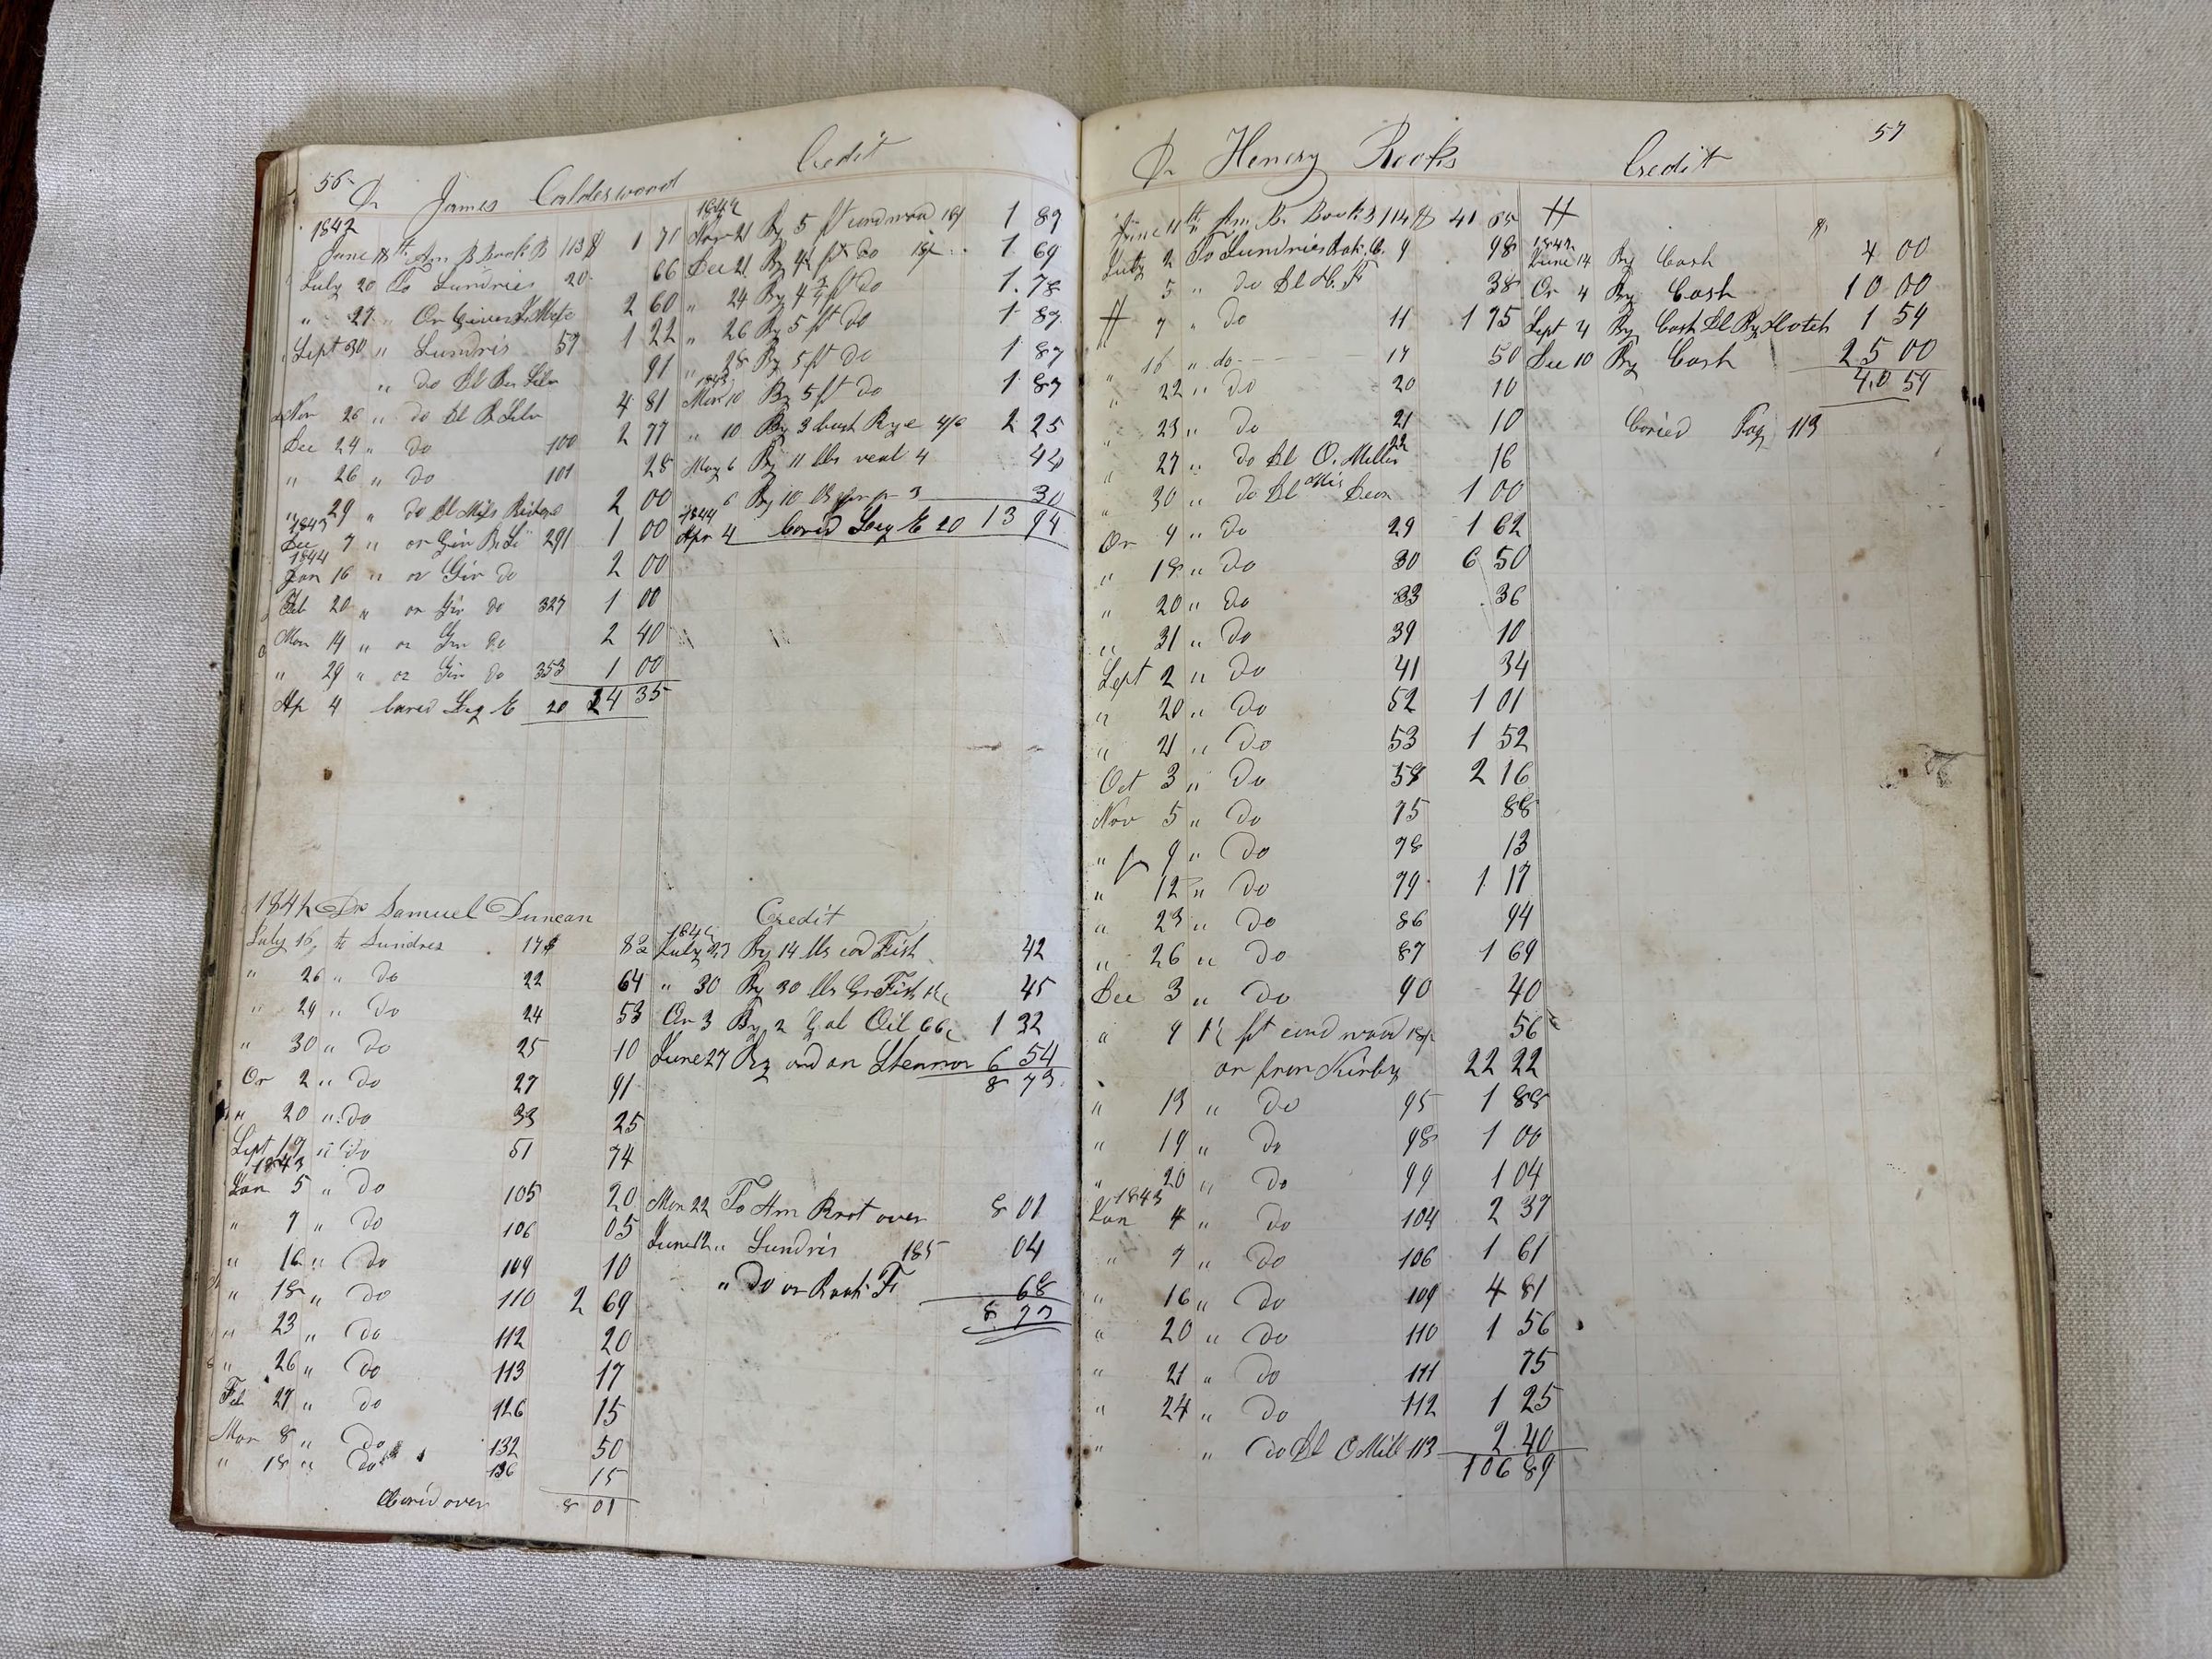 56
Dr James Calderwood Credit
1842
June 18th Am B Book B 113 $ 1 71
July 20 To Sundries 20 66
" 27 " Or Given 2 60
Sept 30 " Sundris 59 1 22
" do Dl 91
Nov 26 " do Dl 4 81
Dec 24 " do 100 2 77
" 26 " do 101 28
" 29 " do Dl Miss 2 00
1843
Dec 7 " or Giv 291 1 00
1844
Jan 16 " or Giv do 2 00
Feb 20 " or Giv do 327 1 00
Mar 14 " or Giv do 2 40
" 29 " or Giv do 353 1 00
Ap 4 Carid Leg E 20 24 35
1842
Nov 21 By 5 ft cordwood 1 89
Dec 21 By 4½ ft do 1 69
" 24 By 4 ft do 1.78
" 26 By 5 ft do 1 89
" 28 By 5 ft do 1 87
1843
Mar 10 By 5 ft do 1 87
" 10 By 3 bush Rye 4/6 2 25
May 6 By 11 lbs veal 4 44
6 By 10 lbs 3 30
1844
Apr 4 Carid Leg E 20 13 94
1842 Dr Samuel Duncan Credit
July 16 to Sundres 17 $ 82
" 26 " do 22 64
" 29 " do 24 53
" 30 " do 25 10
Or 2 " do 27 91
" 20 " do 33 25
Sept 19 " do 51 74
1843
Jan 5 " do 105 20
" 7 " do 106 05
" 16 " do 109 10
" 18 " do 110 2 69
" 23 " do 112 20
" 26 " do 113 17
Feb 27 " do 126 15
Mar 8 " do 132 50
" 18 " do 136 15
Carid over 8 01
1842
July 27 By 14 lbs cod Fish 42
" 30 By 30 lbs Gr Fish 45
Or 3 By 2 Gal Oil 66c 1 32
June 27 By ord on 6 54
8 73
Mar 22 To Am Brot over 8 01
June 12 " Sundris 185 04
" Do or 68
8 73
57
Dr Henery Rooks Credit
June 11th Am B. Book B 114 $ 41 65
July 2 To Sundries 9 98
5 " do Dl 38
7 " do 11 1 75
16 " do 17 50
" 22 " do 20 10
" 23 " do 21 10
" 27 " do Dl O. Miller 22 16
" 30 " do Dl 1 00
Or 9 " do 29 1 62
" 18 " do 30 6 50
" 20 " do 33 36
" 31 " do 39 10
Sept 2 " do 41 34
" 20 " do 52 1 01
" 21 " do 53 1 52
Oct 3 " do 58 2 16
Nov 5 " do 75 88
" 9 " do 78 13
" 12 " do 79 1 17
" 23 " do 86 94
" 26 " do 87 1 69
Dec 3 " do 90 40
" 9 1½ ft cord wood 56
or from Kirby 22 22
" 13 " do 95 1 88
" 19 " do 98 1 00
" 20 " do 99 1 04
1843
Jan 4 " do 104 2 37
" 7 " do 106 1 61
" 16 " do 109 4 81
" 20 " do 110 1 56
" 21 " do 111 75
" 24 " do 112 1 25
" " do Dl O Mill 113 2.40
106 89
1842
June 14 By Cash 4 00
Or 4 By Cash 10 00
Sept 4 By Cash Dl By 1 54
Dec 10 By Cash 25 00
40 54
Caried Pag 113